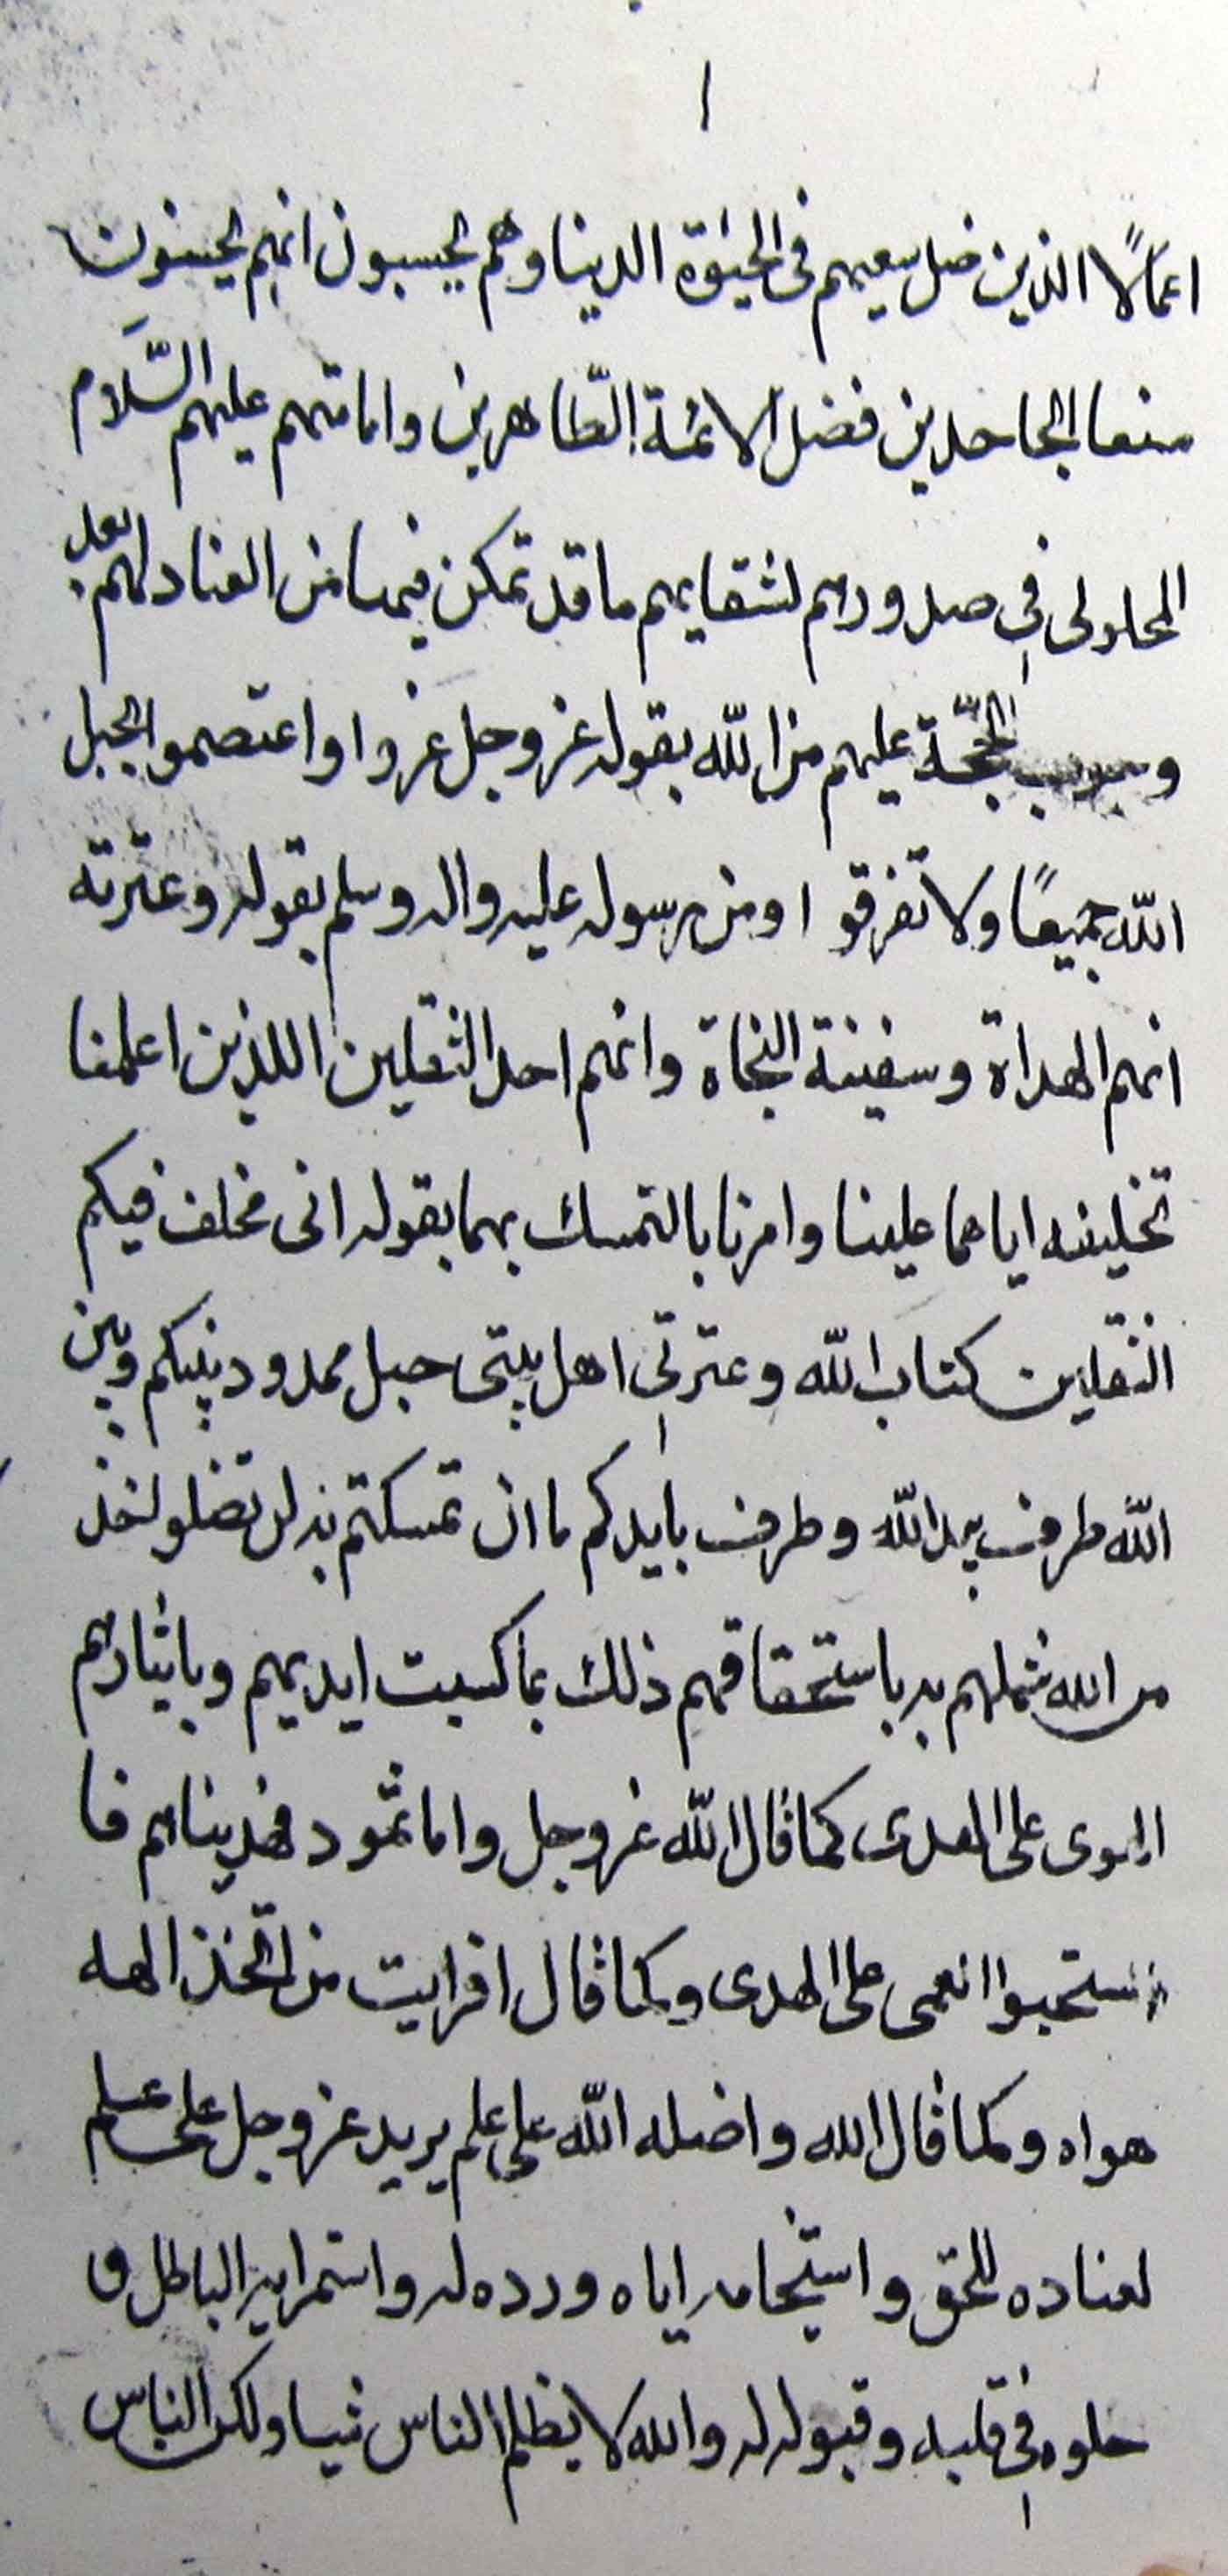 اعمالًا الذين ضل سعيهم فى الحيٰوة الدينا وهم يحسبون انهم يحسنون
صنعا الجاحدين فضل الائمة الطّاهرين وامامتهم عليهم السَّلام
فى صدورهم لشقايهم ما قد تمكن فيها من العناد لهم بعد
و الحجّة عليهم من الله بقوله عز وجل واعتصموا بحبل
اللّه جميعًا ولا تفرقوا ومن رسوله عليه واله وسلم بقوله وعترته
انهم الهداة وسفينة النجاة وانهم احد الثقلين اللذين اعلمنا
تخليفه اياهما علينا وامرنا بالتمسك بهما بقوله انى مخلف فيكم
الثقلين كتاب اللّه وعترتى اهل بيتى حبل ممدود بينكم وبين
اللّه طرف بيد اللّه وطرف بايدكم ما ان تمسكتم به لن تضلو
من الله شملهم به باستحقاقهم ذلك بما كسبت ايديهم وبايثارهم
الهوى على الهدى كما قال اللّه عز وجل واما ثمود فهديناهم فا
ستحبوا العمى على الهدى وكما قال افرايت من اتخذ الهه
هواه وكما قال الله واضله اللّه على علم يريد عز وجل على علم
لعناده للحق اياه ورده له الباطل و
حلوه فى قلبه وقبوله له والله لا يظلم الناس شيا ولكن الناس